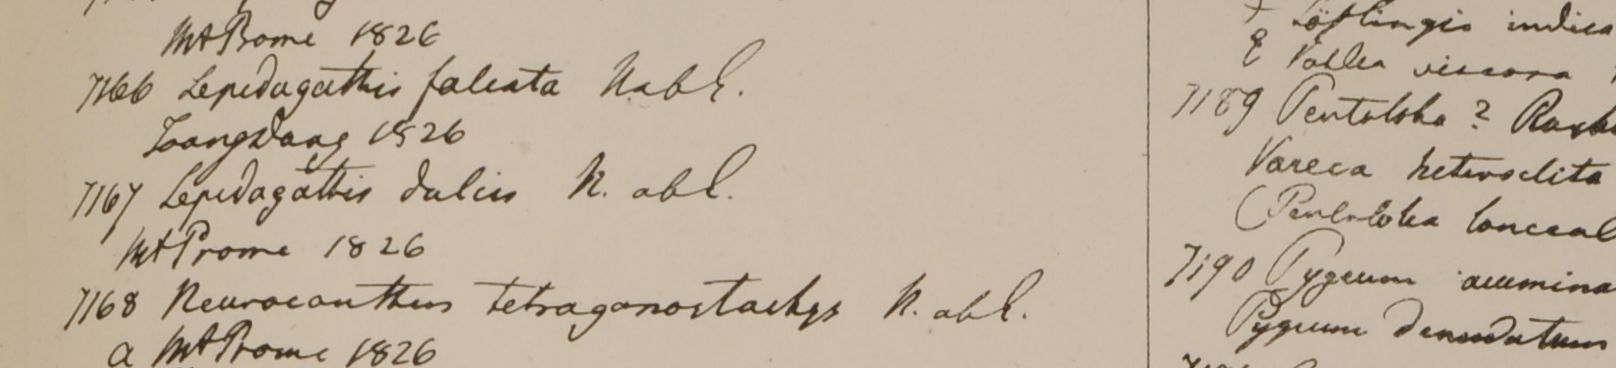 Mt Prome 1826
7166 Lepidagathis falcata N ab E.
Toong Dong 1826
7167 Lepidagathis dulcis N. ab E.
Mt Prome 1826
7168 Neuracanthus tetragonostachys N. ab E.
a Mt Prome 1826
Löflingia indica
E Vahlia viscosa
7189 Pentaloba ?
Vareca heteroclita
(Pentaloba lanceal
7190 Pygeum acumina
Pygeum denudatum